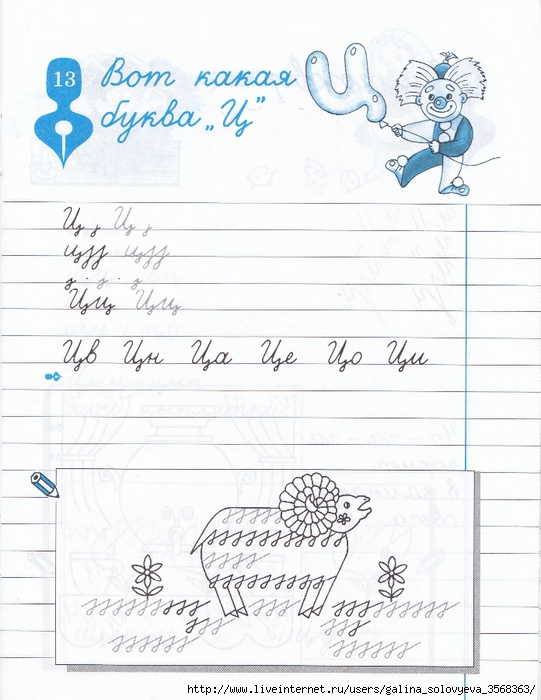 13
Вот какая
буква „Ц”
Ц
Ц Ц
Цц Цц
Цв Цн Ца Це Цо Ци
http://www.liveinternet.ru/users/galina_solovyeva_3568363/